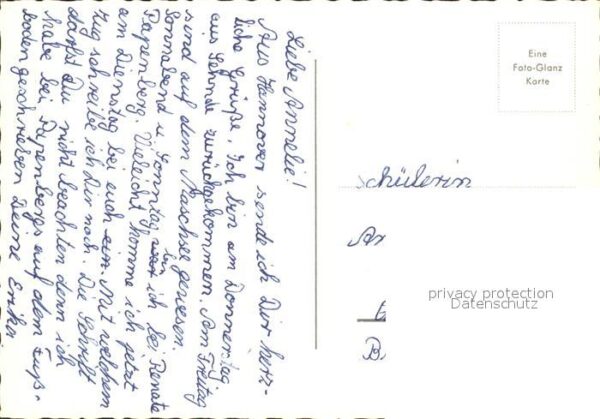 Liebe Annelie!
Aus Hannover sende ich Dir herz-
liche Grüße. Ich bin am Donnerstag
aus Lehnde zurückgekommen. Am Freitag
sind auf dem Maschsee gewesen.
Sonnabend u. Sonntag war ich bei Renate
bin
Papenberg. Vieleicht komme ich jetzt
am Dienstag bei euch ein. Mit welchem
Zug schreibe ich Dir noch. Die Schrift
darfst Du nicht beachten denn ich
habe bei Papenbergs auf dem Fuß-
boden geschrieben Deine
Eine
Foto-Glanz
Karte
Schülerin
An
B.
privacy protection
Datenschutz